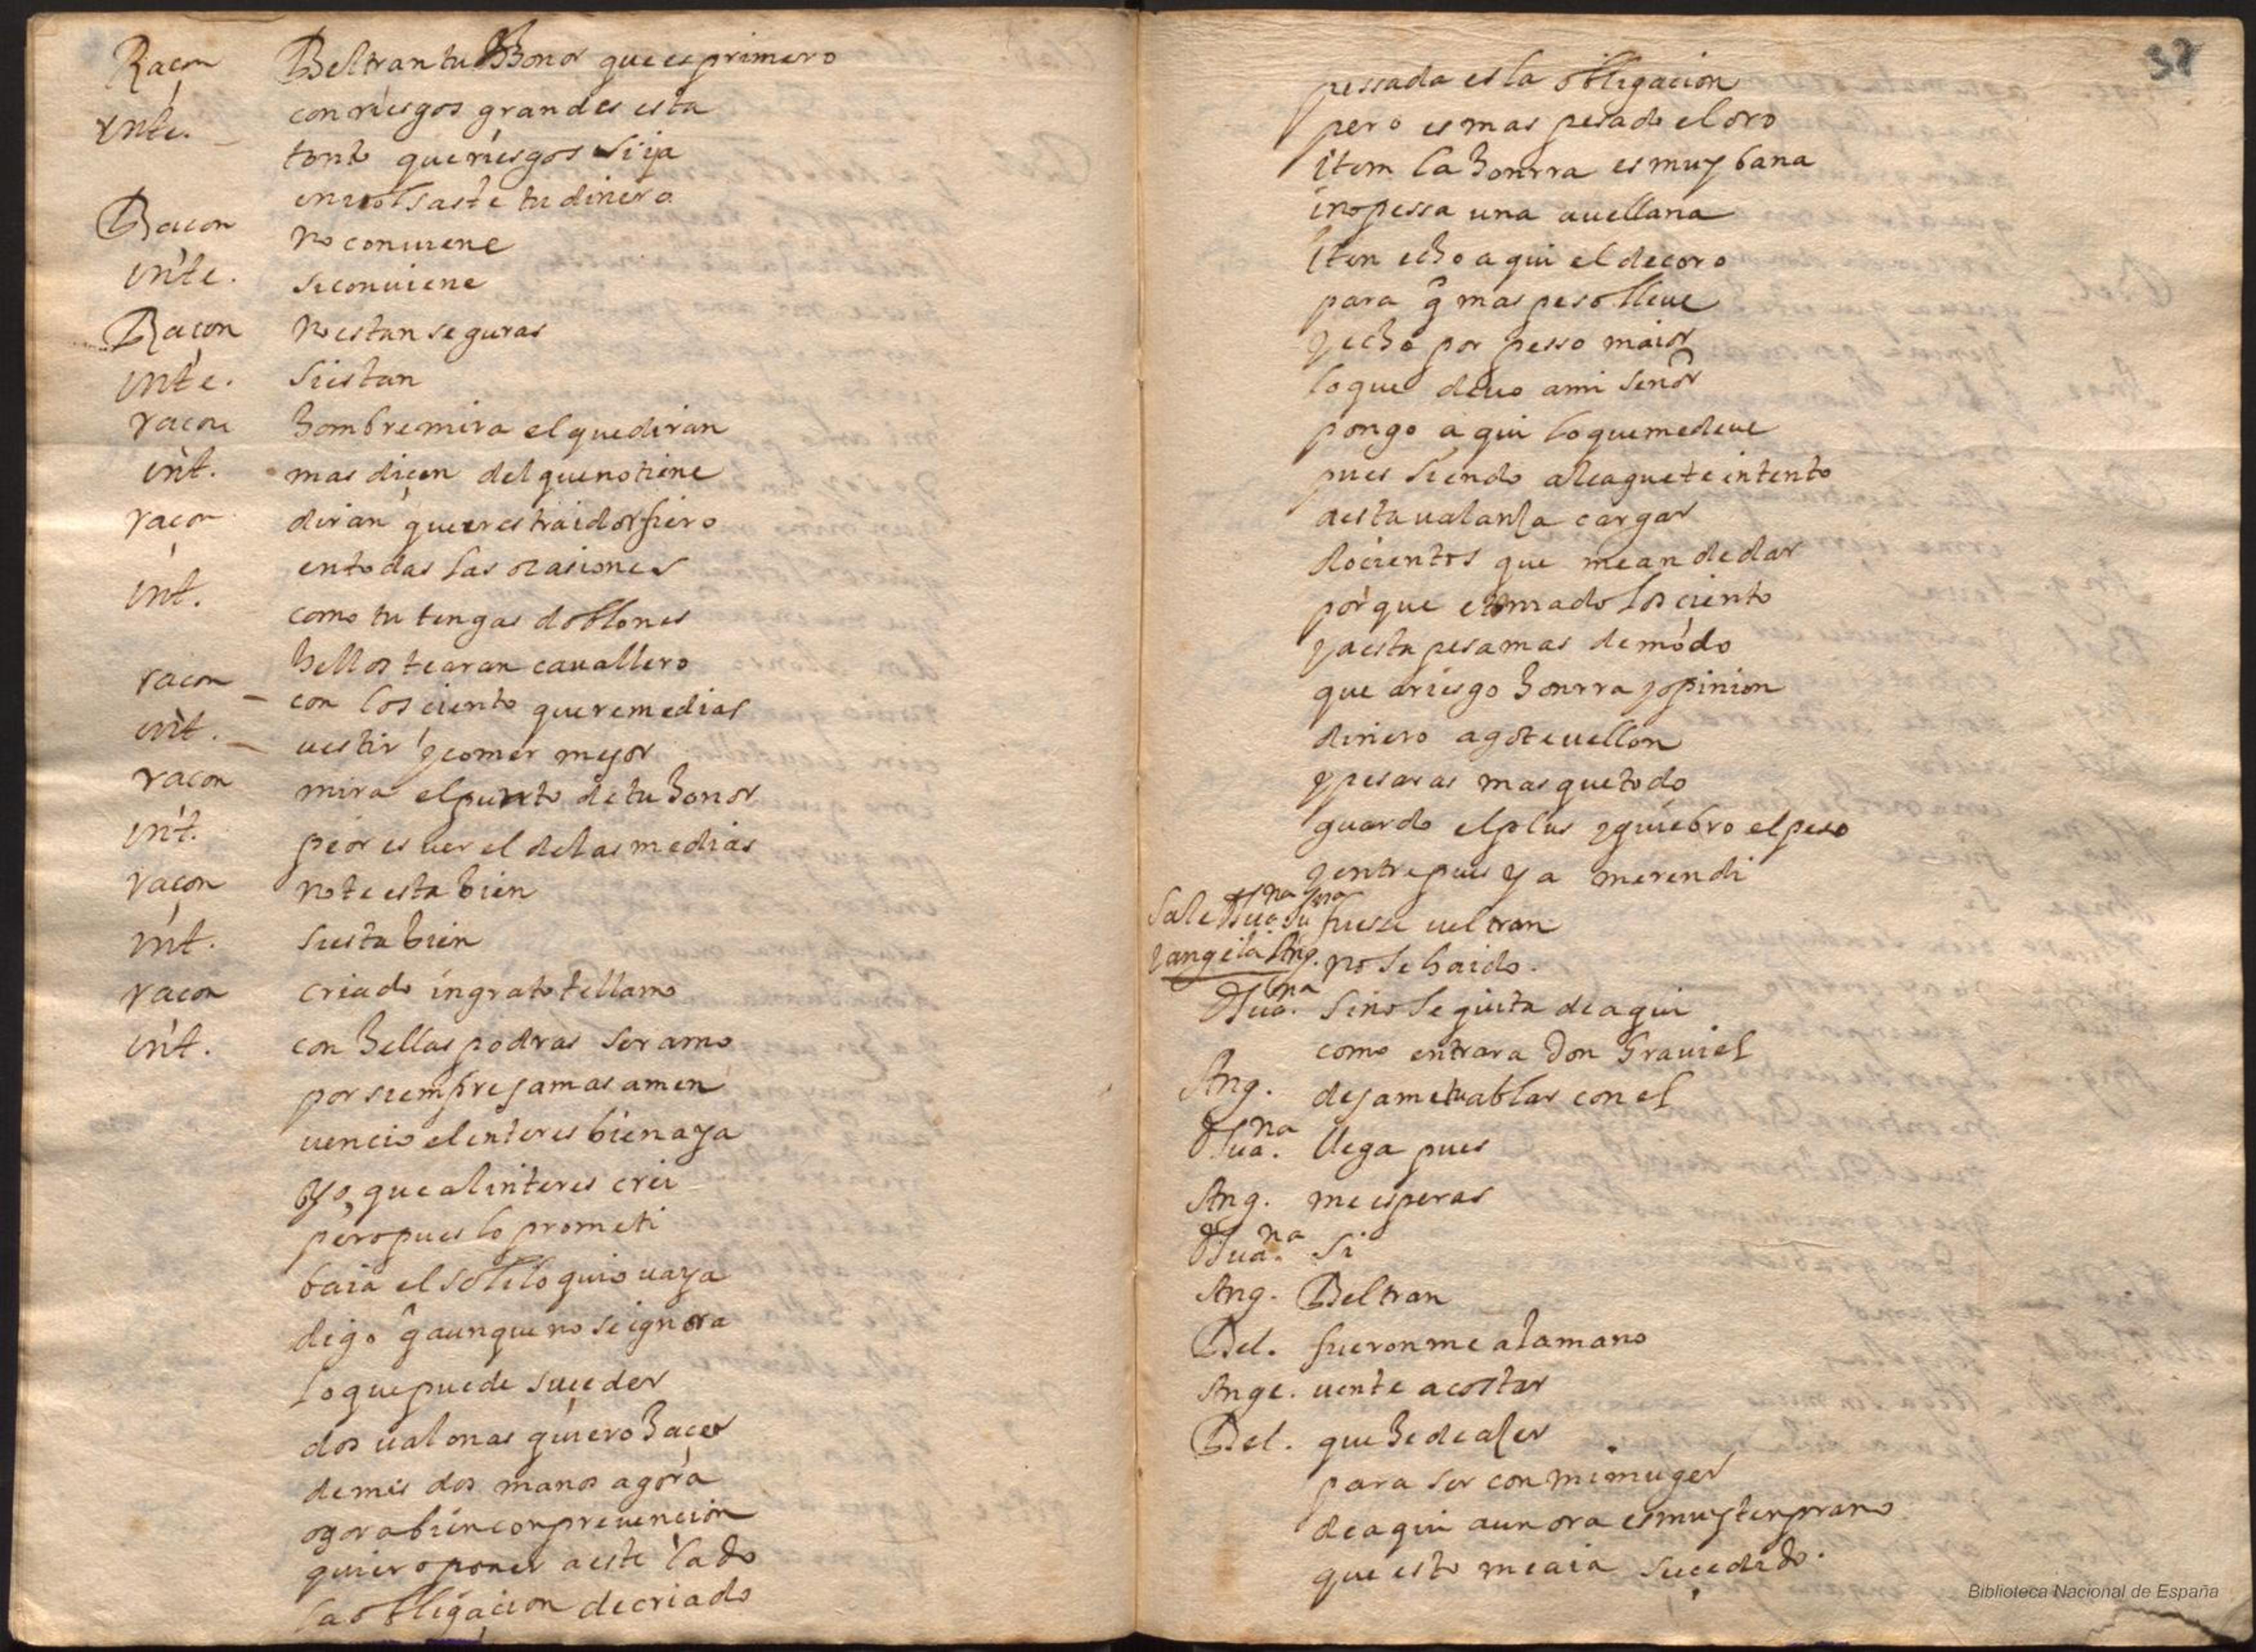 Raçon Beltran tu Honor que es primero
inte. con riesgos grandes esta
tonto que riesgos si ya
enbolsaste tu dinero
Raçon no conuiene
inte. si conuiene
Raçon no estan seguras
inte. si estan
raçon hombre mira el que diran
int. mas diçen del que no tiene
raçon diran que eres traidor fiero
en todas las ocasiones
int. como tu tengas doblones
hellos te aran cauallero
raçon con los ciento que remedias
int. uestir y comer mejor
raçon mira el punto de tu honor
int. peor es uer el de las medias
raçon no te esta bien
int. si esta bien
raçon criado ingrato te llamo
int. con hellas podras ser amo
por siempre jamas amen
uencio el interes bien aya
yo, que al interes crei
pero pues lo prometi
baia el soliloquio uaya
digo q̂ aunque no se ignora
lo que puede suceder
dos ualonas quiero haçer
de mis dos manos agora
agora bien con preuencion
quiero poner a este lado
la obligaçion de criado
37
pessada es la obligacion
pero es mas pesado el oro
item la honrra es muy bana
i no pessa una auellana
iten echo aqui el decoro
para q̂ mas peso lleue
y echo por pesso maior
lo que deuo a mi señor
pongo aqui lo que me deue
pues siendo alcaguete intento
a esta ualanza cargar
docientos que me an de dar
porque e tomado los ciento
y a esta pesa mas de modo
que a riesgo honrra y opinion
dinero agote uellon
y pesaras mas que todo
guardo el plus y quiebro el peso
y entre pues ya me rendi
Sale Jua.na Jua.na fuese ueltran
y angela Ang. no se ha ido.
Jua.na Si no se quita de aqui
como entrara Don Grauiel
Ang. dejame tu ablar con el
Jua.na llega pues
Ang. me esperas
Jua.na Si
Ang. Beltran
Bel. fueronme a la mano
Ange. uente acostar
Bel. que he de azer
para ser con mi muger
de aqui a un ora es muy temprano
que esto me aia suçedido.
Biblioteca Nacional de España